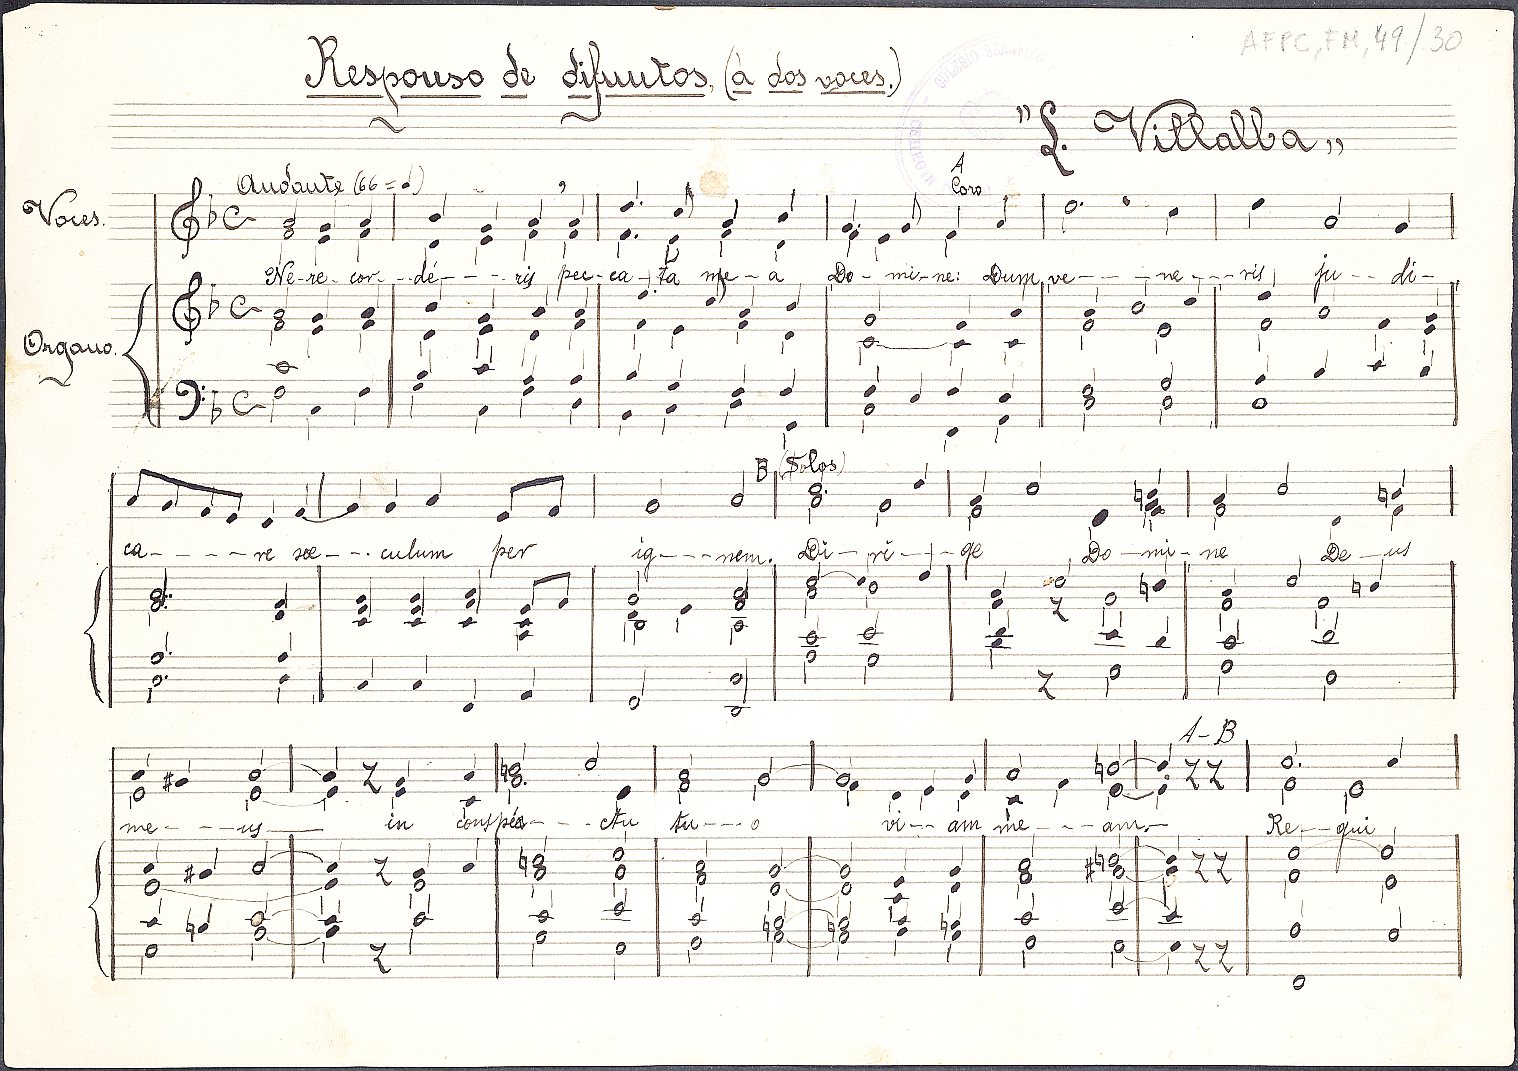 AFPC, FM, 49/30
Responso de difuntos, (à dos voces.)
"L. Villalba"
Andante (66 = ♩)
A
Coro
Voces.
Ne-re-cor-dé----ris pec-ca-ta me-a Do-mi-ne: Dum ve----ne---ris, ju--di-
Organo.
B (Solos)
ca-----re sæ---culum per ig---nem. Di-ri--ge Do-mi-ne De-us
A-B
me---us in conspéc---ctu tu---o vi--am me---am.- Re--qui